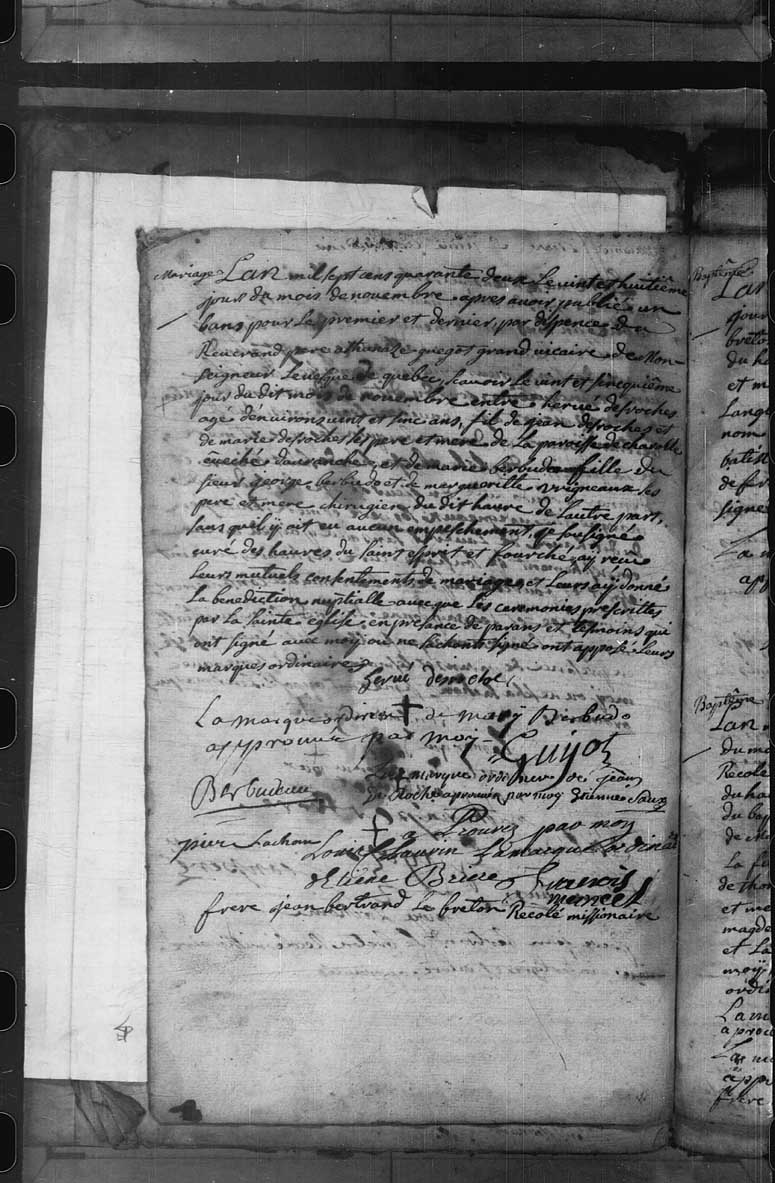 Mariage Lan mil sept cens quarante deux le vint et huitième
jour du mois de novembre apres avoir publié un
bans pour le premier et dernier, par dispence du
Reverand pere athanaze guegot grand vicaire de Mon-
seigneur Levesque de quebec, scavoir le vint et sincquième
jour du dit mois de novembre entre hervé desroches
agé denviron vint et sinc ans, fil de jean desroches et
de marie desroches ses pere et mere de La paroisse de
évéché davranche, et de marie berbudeau fille du
sieur george berbudo et de margueritte vrigneaux ses
pere et mere chirugien du dit havre de Lautre part,
sans quil ÿ ait eu aucun empeschement, je sousigné
curé des havres du saint esprit et fourché, aÿ receu
Leurs mutuels consentements de mariage, et Leurs aÿ donné
La benediction nuptialle avecque Les ceremonies prescrittes
par La sainte église, en presance de parans et temoins qui
ont signé avec moÿ ou ne sachant signé ont apposé Leurs
marques ordinaires
herve deroche
La marque ordinere de marÿ Berbudo
approuvé par moy Guÿot
Berbudeau
La marque ordinere de jean
La Roche aprouvé par moy Etienne
a Prouvez par moy
pier Lachau
Louis Lauvin Lamarque ordinair
detiene Briere francois
frere jean bertrand Le breton Recolé missionaire
Baptême
Lan
jour
breton
du ha
et m
Lange
nom
batis
de fr
signe
La m
app
Baptême
Lan
du mo
Récolé
du ha
du bap
de M
La f
de tho
et me
magde
et La
moÿ
ordi
La m
aprou
La m
appr
frere